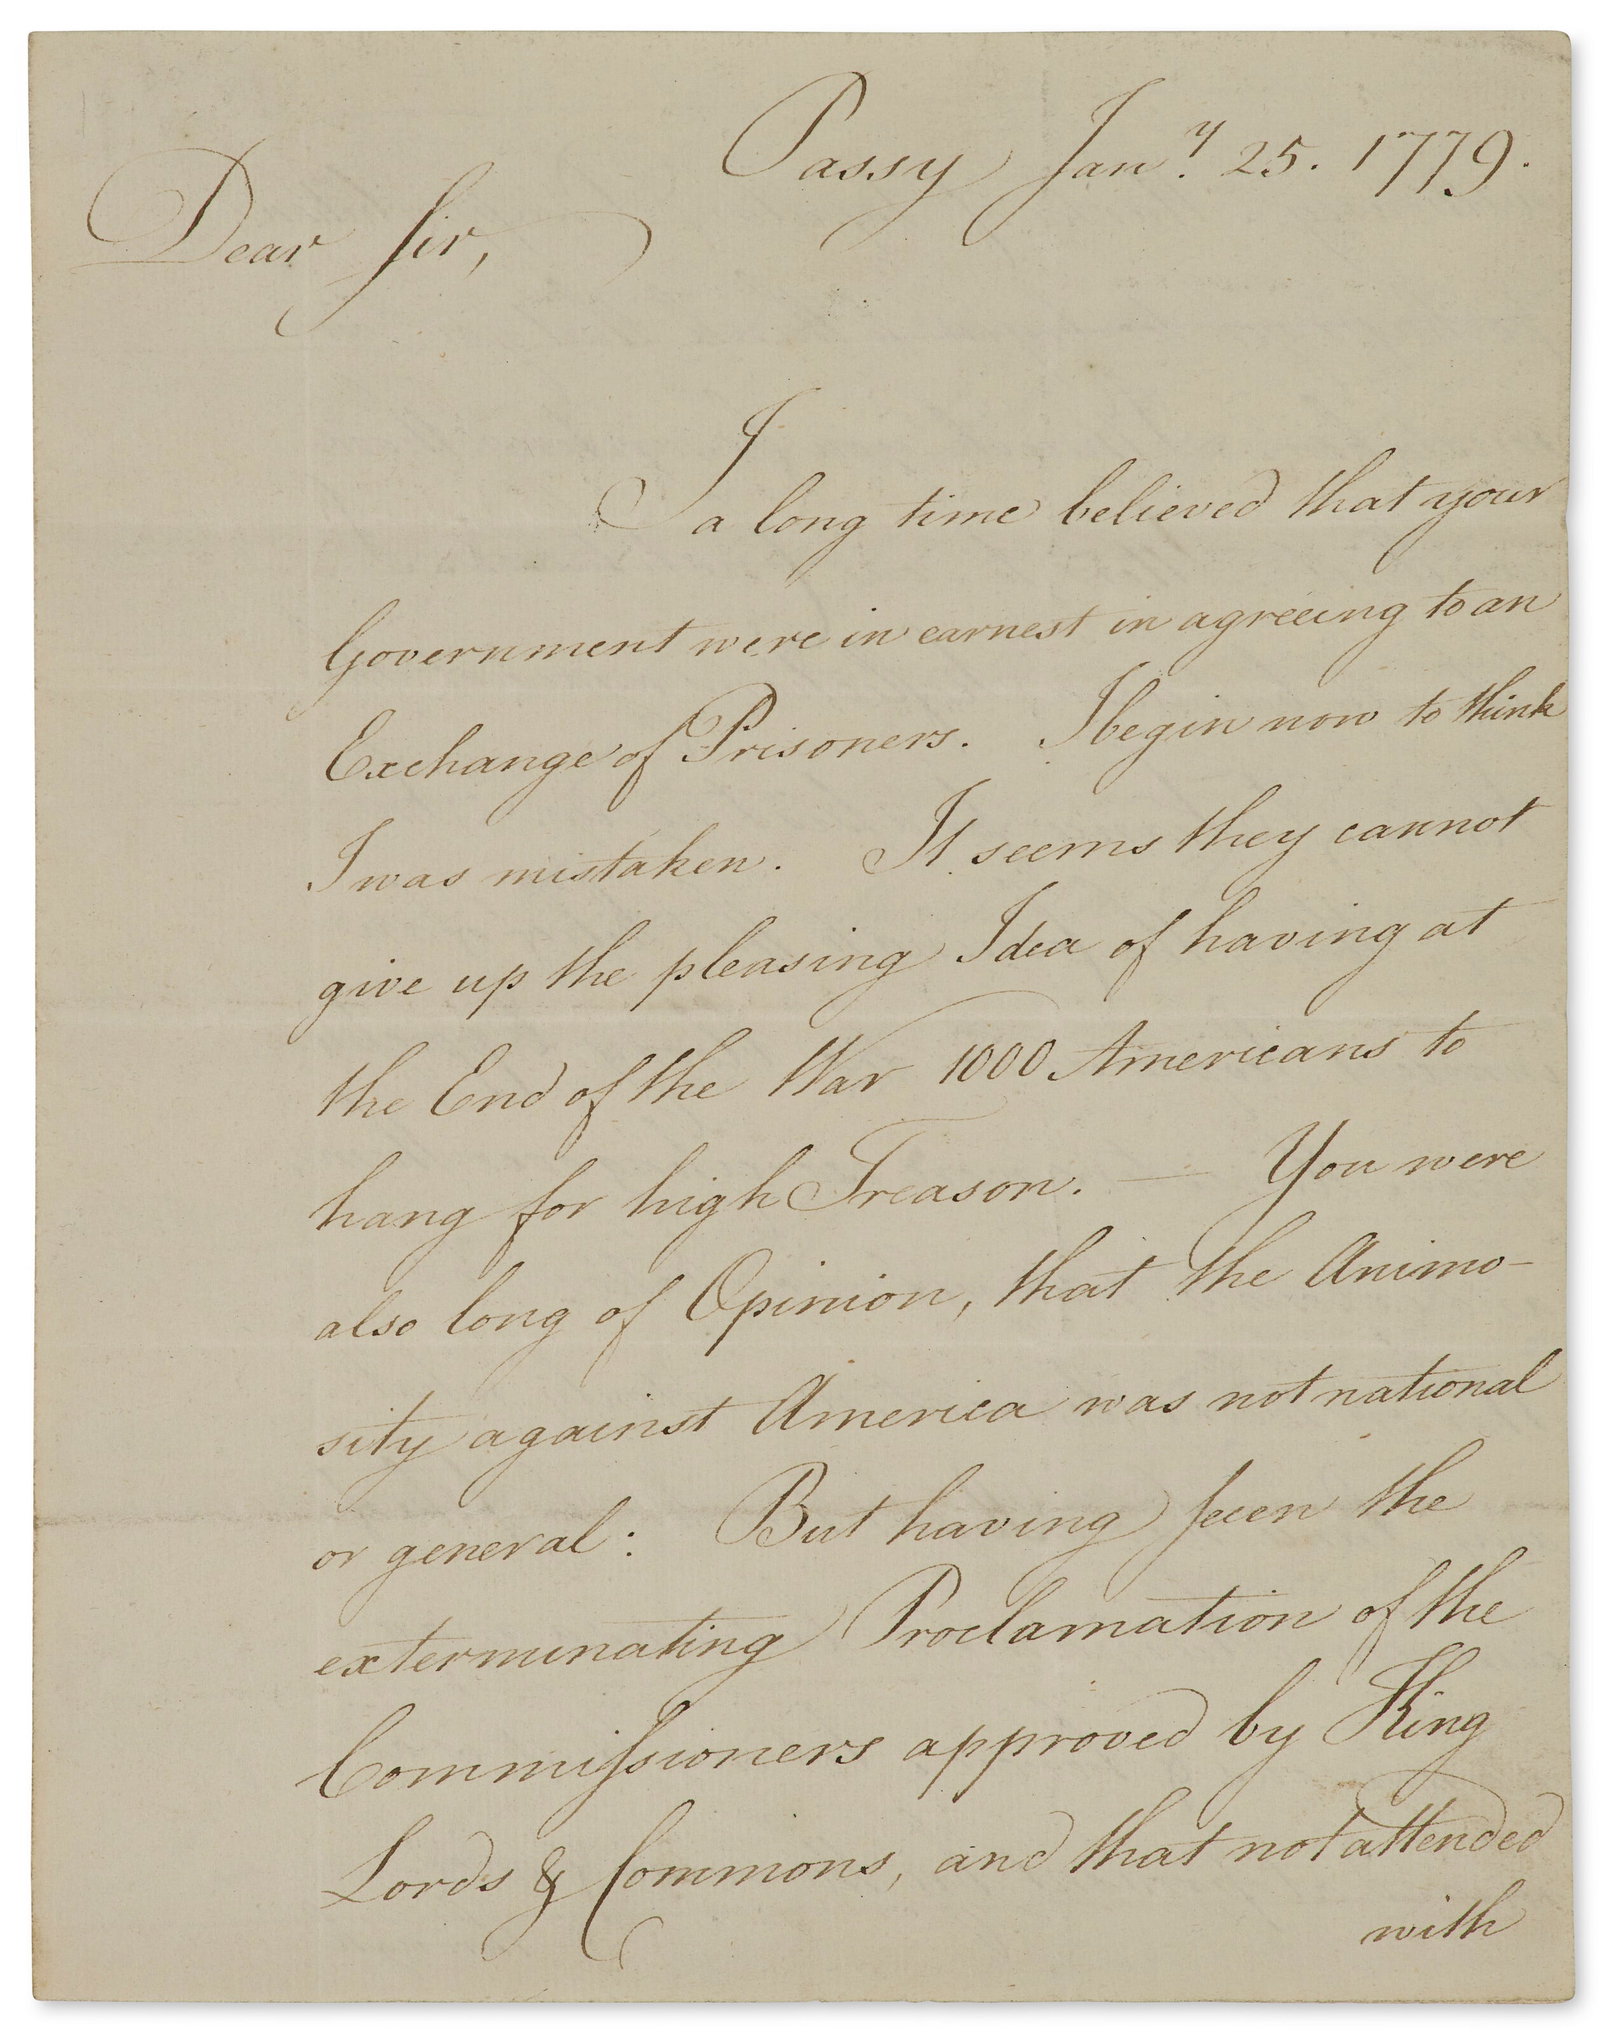 Passy Jan.y 25. 1779.
Dear Sir,
I
a long time believed that your
Government were in earnest in agreeing to an
Exchange of Prisoners. I begin now to think
I was mistaken. It seems they cannot
give up the pleasing Idea of having at
the End of the War 1000 Americans to
hang for high Treason. — You were
also long of Opinion, that the Animo-
sity against America was not national
or general: But having seen the
exterminating Proclamation of the
Commissioners approved by King
Lords & Commons, and that not attended
with